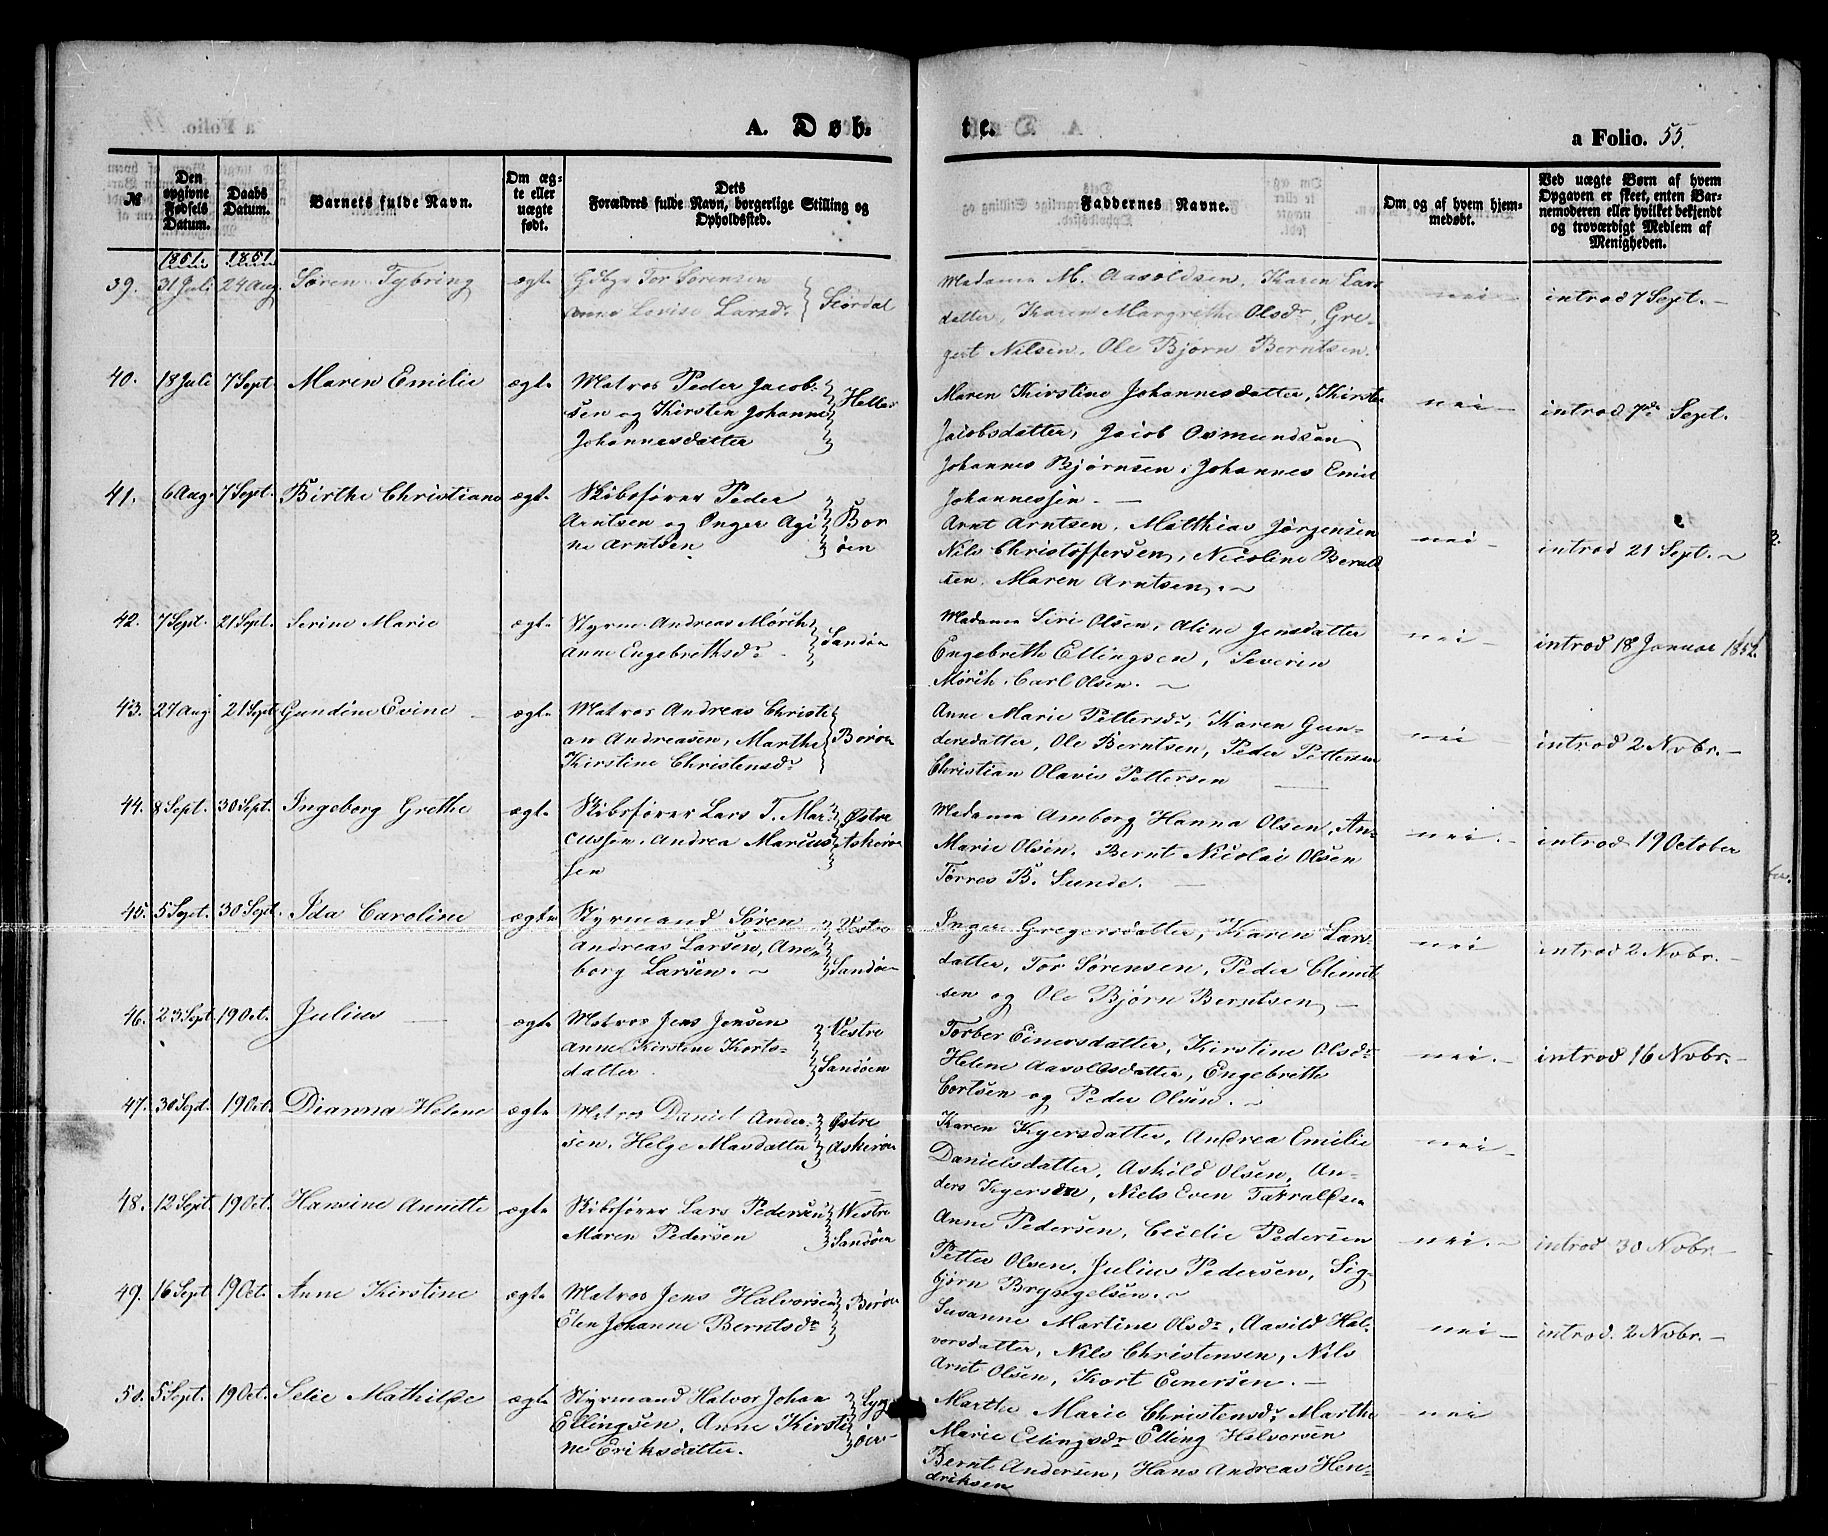 A. Døb-
te.
a Folio. 55.
№
Den opgivne Fødsels Datum.
Daabs Datum.
Barnets fulde Navn.
Om ægte eller uægte født.
Dets Forældres fulde Navn, borgerlige Stilling og Opholdssted.
Faddernes Navne.
Om og af hvem hjemmedøbt.
Ved uægte Børn af hvem Opgaven er skeet, enten Barnemoderen eller hvilket bekjendt og troværdigt Medlem af Menigheden.
1851. 1851.
39. 31 Juli 24 Aug. Søren Tybring ægte Gdbgr Tor Sørensen
Anne Lovise Larsdr Staardal
Madame M. Aavoldsen, Karen Lars
datter, Karen Margrethe Olsdr, Gre-
gert Nilsen, Ole Bjørn Berntsen.
nei introd 7 Sept.
40. 18 Juli 7 Sept. Maren Emilie ægte Matros Peder Jacob-
sen og Kirsten Johanne
Johannesdatter
Maren Kirstine Johannesdatter, Kirste
Jacobsdatter, Jacob Osmundsen
Johannes Bjørnsen, Johannes Emil
Johannessen.
nei introd 7de Sept.
41. 6 Aug. 7 Sept. Birthe Christiane ægte Skibsfører Peder
Arntsen og Inger Agi
ne Arntsen
Bor
øen
Arnt Arntsen, Matthias Jørgensen
Nils Christoffersen, Nicoline Berald
sen, Maren Arntsen.
nei introd 21 Sept.
42. 7 Sept. 21 Sept. Serine Marie ægte Styrm. Andreas Mørch
Anne Engebrethsdr Sandøen
Madame Siri Olsen, Aline Jensdatter
Engebreth Ellingsen, Severin
Mørch, Carl Olsen.
nei introd 18 Januar 1852.
43. 27 Aug. 21 Sept. Gundine Evine ægte Matros Andreas Christi
an Andreasen, Marthe
Kirstine Christensdr
Borøen
Anne Marie Pettersdr, Karen Gun-
dersdatter, Ole Berntsen, Peder Pettersen
Christian Olavis Pettersen
nei introd 2 Nvbr.
44. 8 Sept. 30 Sept. Ingeborg Grethe ægte Skibsfører Lars T. Mar
cussen, Andrea Marius
sen
Østre
Askerøen
Madame Amborg Hanna Olsen, An-
Marie Olsen, Bernt Nicolai Olsen
Torres B. Sunde.
nei. introd 19 October
45. 5 Sept. 30 Sept. Ida Caroline ægte Styrmand Søren
Andreas Larsen, Anne
borg Larsen.
Vestre
Sandøen
Inger Gregersdatter, Karen Lars-
datter, Tor Sørensen, Peder Clemet
sen og Ole Bjørn Berntsen
nei introd 2 Nvbr.
46. 23 Sept. 19 Oct. Julius ægte Matros Jens Jensen
Anne Kirstine Korts-
datter.
Vestre
Sandøen
Torber Einersdatter, Kirstine Olsdr
Helene Aavoldsdatter, Engebreth
Cortsen og Peder Olsen.
nei. introd 16 Nvbr.
47. 30 Sept. 19 Oct. Dianna Helene ægte Matros Daniel Ander-
sen, Helge Masdatter
Østre
Askerøen
Karen Kyersdatter, Andrea Emilie
Danielsdatter, Askild Olsen, An-
ders Kyersen, Niels Even Taraldsen
nei
48. 12 Sept. 19 Oct. Hansine Annette ægte Skibsfører Lars Pedersen
Maren Pedersen
Westre
Sandøen
Anne Pedersen, Cecilie Pedersen
Petter Olsen, Julius Pedersen, Sig-
bjørn Bryngelsen.
nei. introd 30 Nvbr.
49. 16 Sept. 19 Oct. Anne Kirstine ægte Matros Jens Halvorsen
Elen Johanne Berntsdr
Borøen
Susanne Martine Olsdr, Aasild Hal-
vorsdatter, Nils Christensen, Nils
Arnt Olsen, Kort Einersen.
nei introd. 2 Nvbr.
50. 5 Sept. 19 Oct. Selie Mathilde ægte Styrmand Halvor Johan
Ellingsen, Anne Kirsti
ne Eriksdatter.
Lyng
øer
Marthe Marie Christensdr Marthe
Marie Ellingsdr Elling Halvorsen
Bernt Andersen, Hans Andreas Hen-
driksen
nei